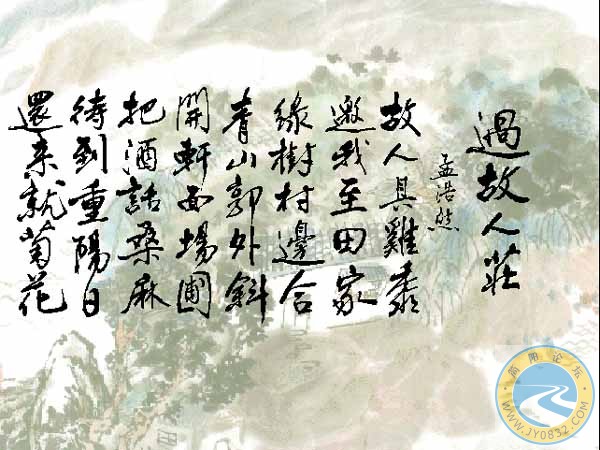 過故人莊
孟浩然
故人具雞黍
邀我至田家
綠樹村邊合
青山郭外斜
開軒面場圃
把酒話桑麻
待到重陽日
還来就菊花
简阳论坛
WWW.JY0832.COM